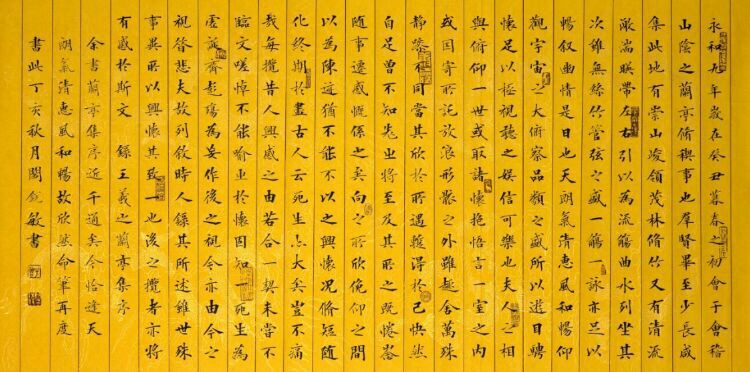 永和九年歲在癸丑暮春之初會于會稽
山陰之蘭亭脩禊事也羣賢畢至少長咸
集此地有崇山峻領茂林脩竹又有清流
激湍暎帶左右引以為流觴曲水列坐其
次雖無絲竹管弦之盛一觴一詠亦足以
暢叙幽情是日也天朗氣清惠風和暢仰
觀宇宙之大俯察品類之盛所以遊目騁
懷足以極視聽之娛信可樂也夫人之相
與俯仰一世或取諸懷抱悟言一室之内
或因寄所託放浪形骸之外雖趣舍萬殊
靜躁不同當其欣於所遇暫得於己快然
自足曾不知老之將至及其所之既惓情
隨事遷感慨係之矣向之所欣俛仰之間
以為陳迹猶不能不以之興懷况脩短隨
化終期於盡古人云死生亦大矣豈不痛
哉每攬昔人興感之由若合一契未嘗不
臨文嗟悼不能喻之於懷固知一死生為
虛誕齊彭殤為妄作後之視今亦由今之
視昔悲夫故列敘時人錄其所述雖世殊
事異所以興懷其致一也後之攬者亦將
有感於斯文 錄王羲之蘭亭集序
余書蘭亭集序近千通矣今恰逢天
朗氣清惠風和暢故欣然命筆再度
書此丁亥秋月閻銳敏書